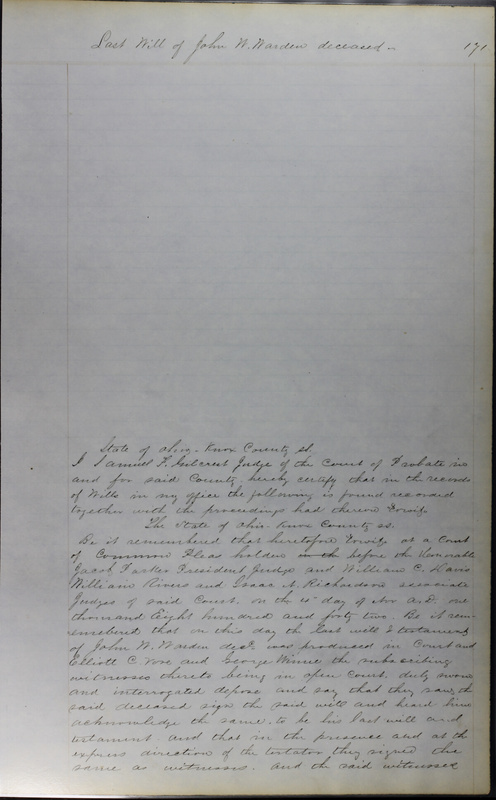 Last Will of John W. Warden deceased
171
State of Ohio - Knox County ss.
I Samuel F. Gilcrest Judge of the Court of Probate in
and for said County, hereby certify that in the records
of Wills in my office the following is found recorded
together with the proceedings had thereon Towit
The State of Ohio Knox County ss.
Be it remembered that heretofore Towit at a Court
of Common Pleas holden in the before the Honorable
Jacob Parker President Judge and William C. Davis
William Rivers and Isaac N. Richardson associate
Judges of said Court, on the day of Nov A.D. one
thousand Eight hundred and forty two. Be it rem-
emebered that on this day the last will & testament
of John W. Warden decd was produced in Court and
Elliott C. Vore and George Winne the subscribing
witnesses thereto being in open Court, duly sworn
and interrogated depose and say that they saw the
said deceased sign the said will and heard him
acknowledge the same, to be his last will and
testament and that in the presence and at the
express direction of the testator they signed the
same as witnesses. and the said witnesses